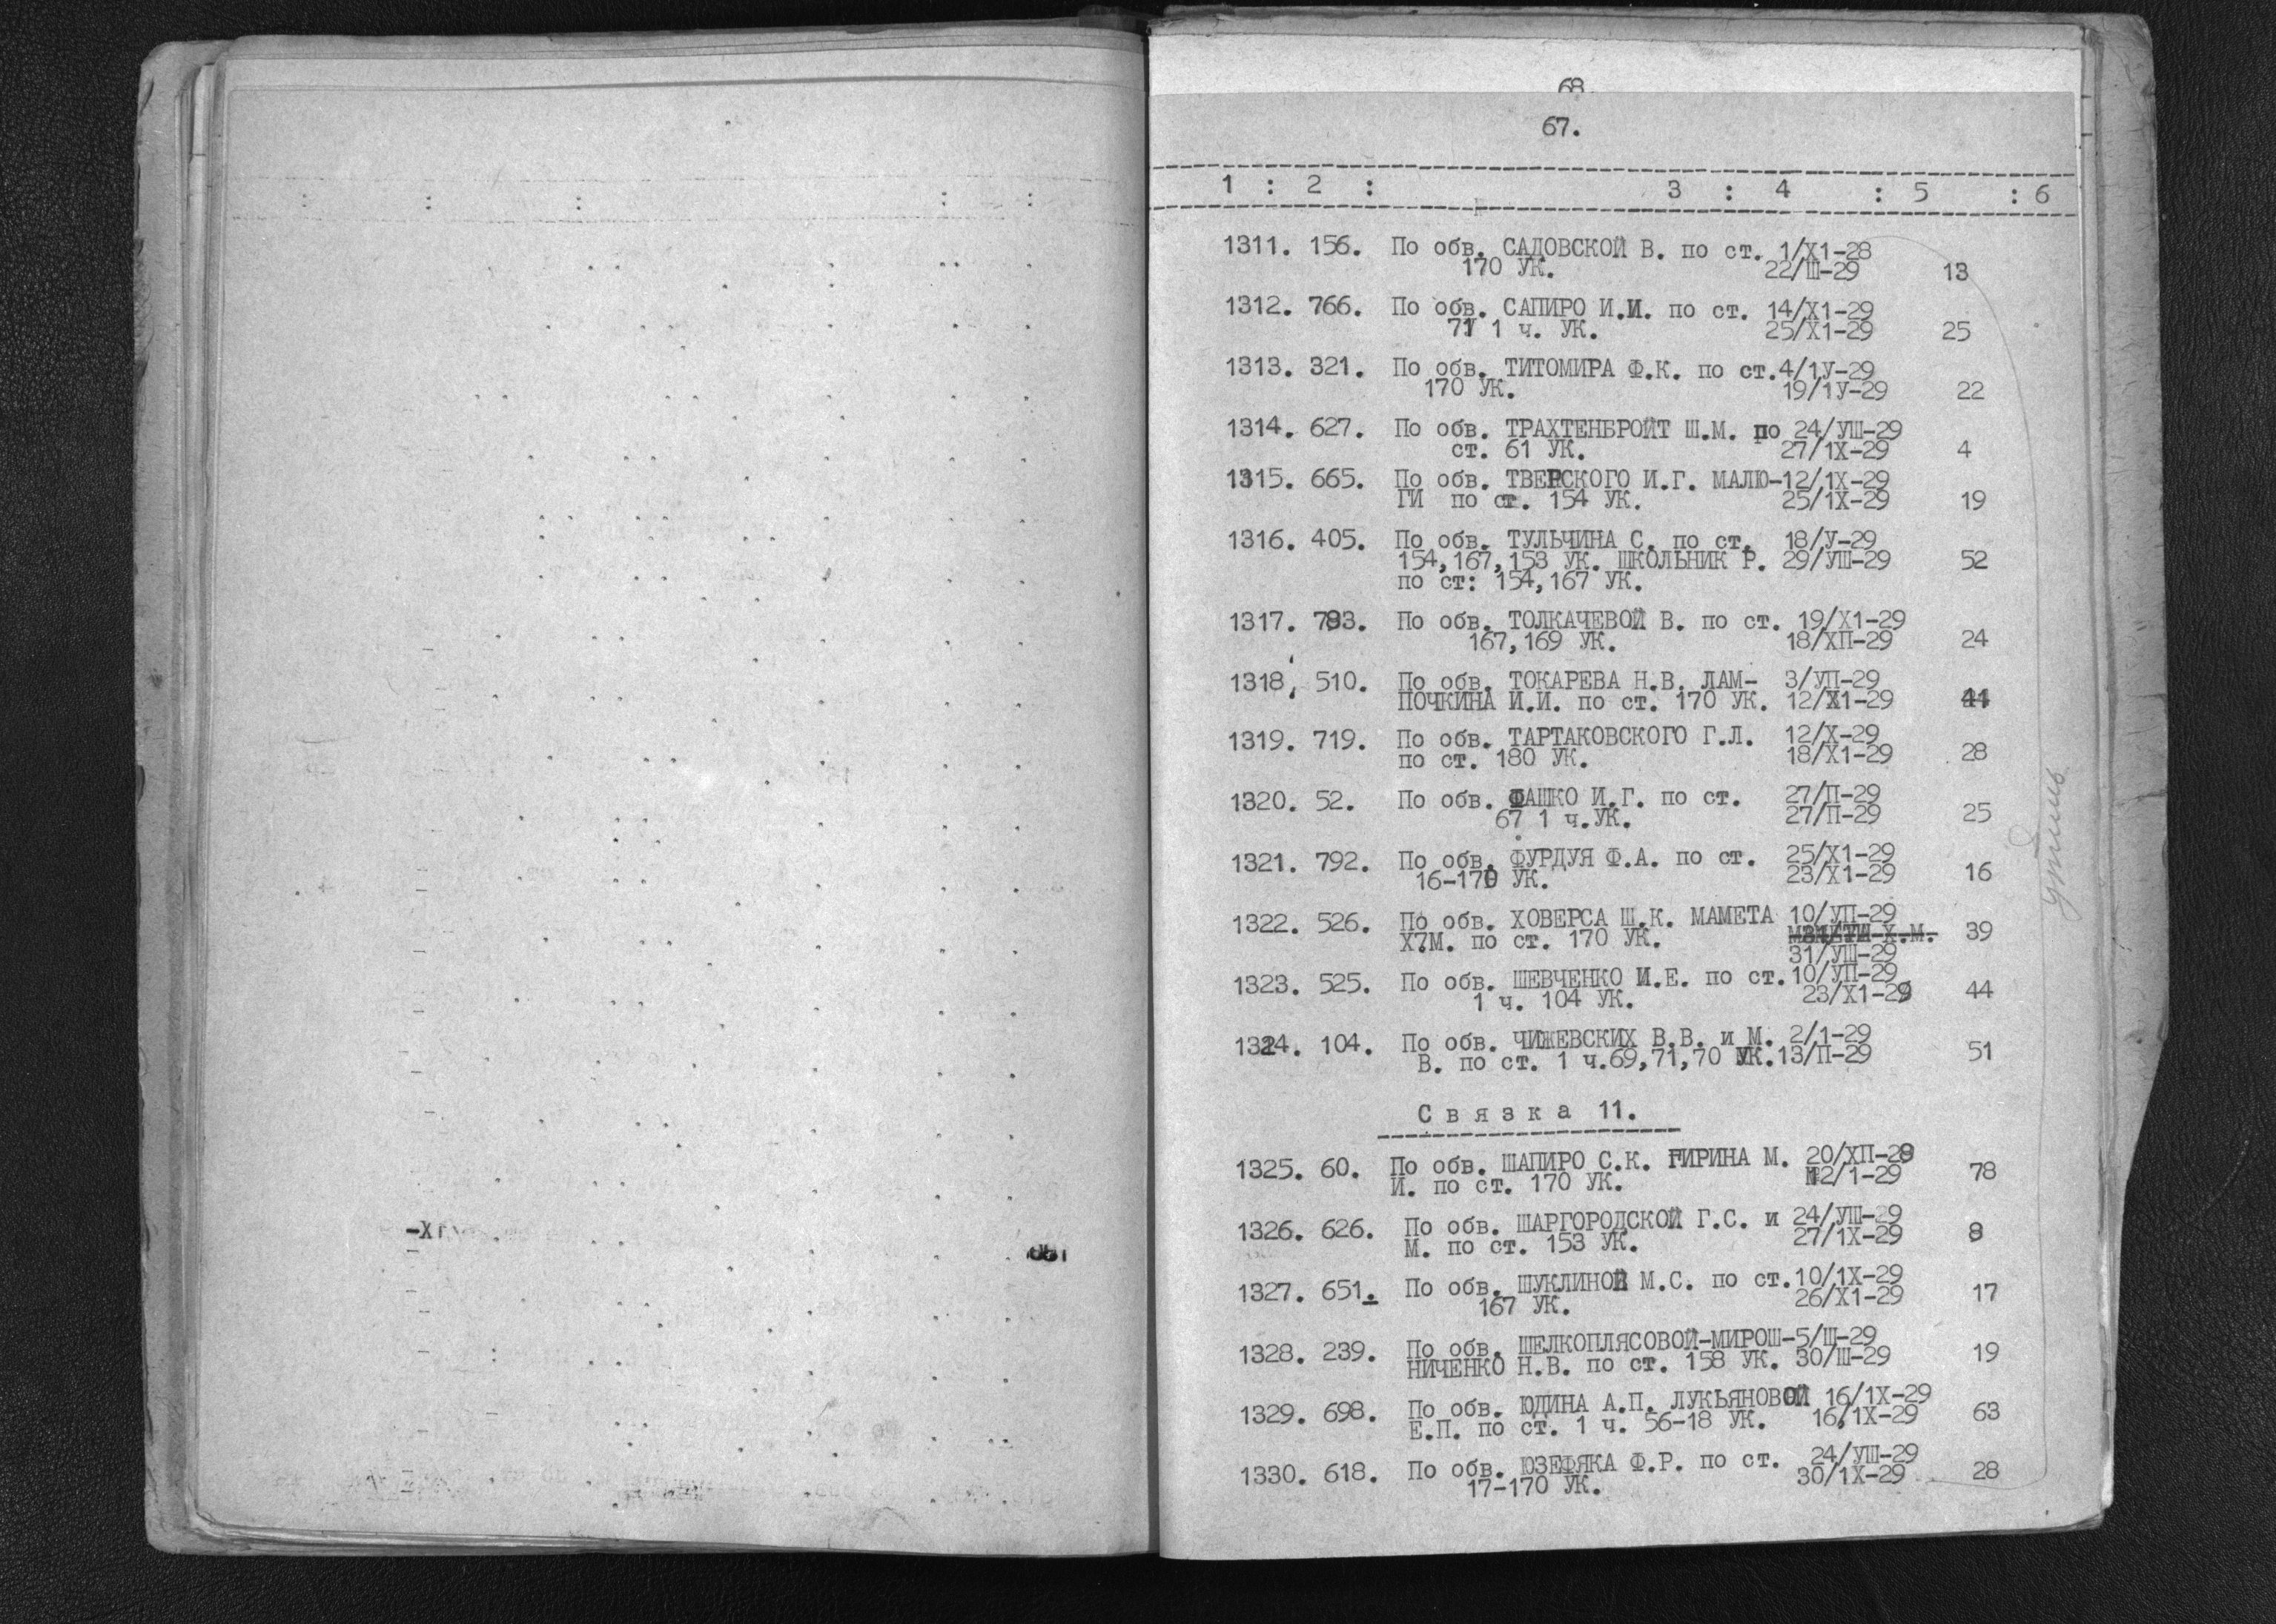 68.
67.
1 : 2 : 3 : 4 : 5 : 6
1311. 156. По обв. САДОВСКОЙ В. по ст. 1/Х1-28
170 УК. 22/Ш-29 13
1312. 766. По обв. САПИРО И.И. по ст. 14/Х1-29
71 1 ч. УК. 25/Х1-29 25
1313. 321. По обв. ТИТОМИРА Ф.К. по ст.4/1У-29
170 УК. 19/1У-29 22
1314. 627. По обв. ТРАХТЕНБРОЙТ Ш.М. по 24/УШ-29
ст. 61 УК. 27/1Х-29 4
1315. 665. По обв. ТВЕРСКОГО И.Г. МАЛЮ-12/1Х-29
ГИ по ст. 154 УК. 25/1Х-29 19
1316. 405. По обв. ТУЛЬЧИНА С. по ст. 18/У-29
154,167,153 УК. ШКОЛЬНИК Р. 29/УШ-29 52
по ст: 154,167 УК.
1317. 793. По обв. ТОЛКАЧЕВОЙ В. по ст. 19/Х1-29
167,169 УК. 18/ХП-29 24
1318, 510. По обв. ТОКАРЕВА Н.В. ЛАМ- 3/УП-29
ПОЧКИНА И.И. по ст. 170 УК. 12/Х1-29 41
1319. 719. По обв. ТАРТАКОВСКОГО Г.Л. 12/Х-29
по ст. 180 УК. 18/Х1-29 28
1320. 52. По обв. ФАШКО И.Г. по ст. 27/П-29
67 1 ч.УК. 27/П-29 25
1321. 792. По обв. ФУРДУЯ Ф.А. по ст. 25/Х1-29
16-170 УК. 23/Х1-29 16
1322. 526. По обв. ХОВЕРСА Ш.К. МАМЕТА 10/УП-29
Х7М. по ст. 170 УК. Х.М. 39
31/УШ-29
1323. 525. По обв. ШЕВЧЕНКО И.Е. по ст.10/УП-29
1 ч. 104 УК. 23/Х1-29 44
1324. 104. По обв. ЧИЖЕВСКИХ В.В. и М. 2/1-29
В. по ст. 1 ч.69,71,70 УК.13/П-29 51
Связка 11.
1325. 60. По обв. ШАПИРО С.К. ГИРИНА М. 20/ХП-28
И. по ст. 170 УК. 12/1-29 78
1326. 626. По обв. ШАРГОРОДСКОЙ Г.С. и 24/УШ-29
М. по ст. 153 УК. 27/1Х-29 8
1327. 651. По обв. ШУКЛИНОЙ М.С. по ст.10/1Х-29
167 УК. 26/Х1-29 17
1328. 239. По обв. ШЕЛКОПЛЯСОВОЙ-МИРОШ-5/Ш-29
НИЧЕНКО Н.В. по ст. 158 УК. 30/Ш-29 19
1329. 698. По обв. ЮДИНА А.П. ЛУКЬЯНОВОЙ 16/1Х-29
Е.П. по ст. 1 ч. 56-18 УК. 16/1Х-29 63
1330. 618. По обв. ЮЗЕФЯКА Ф.Р. по ст. 24/УШ-29
17-170 УК. 30/1Х-29 28